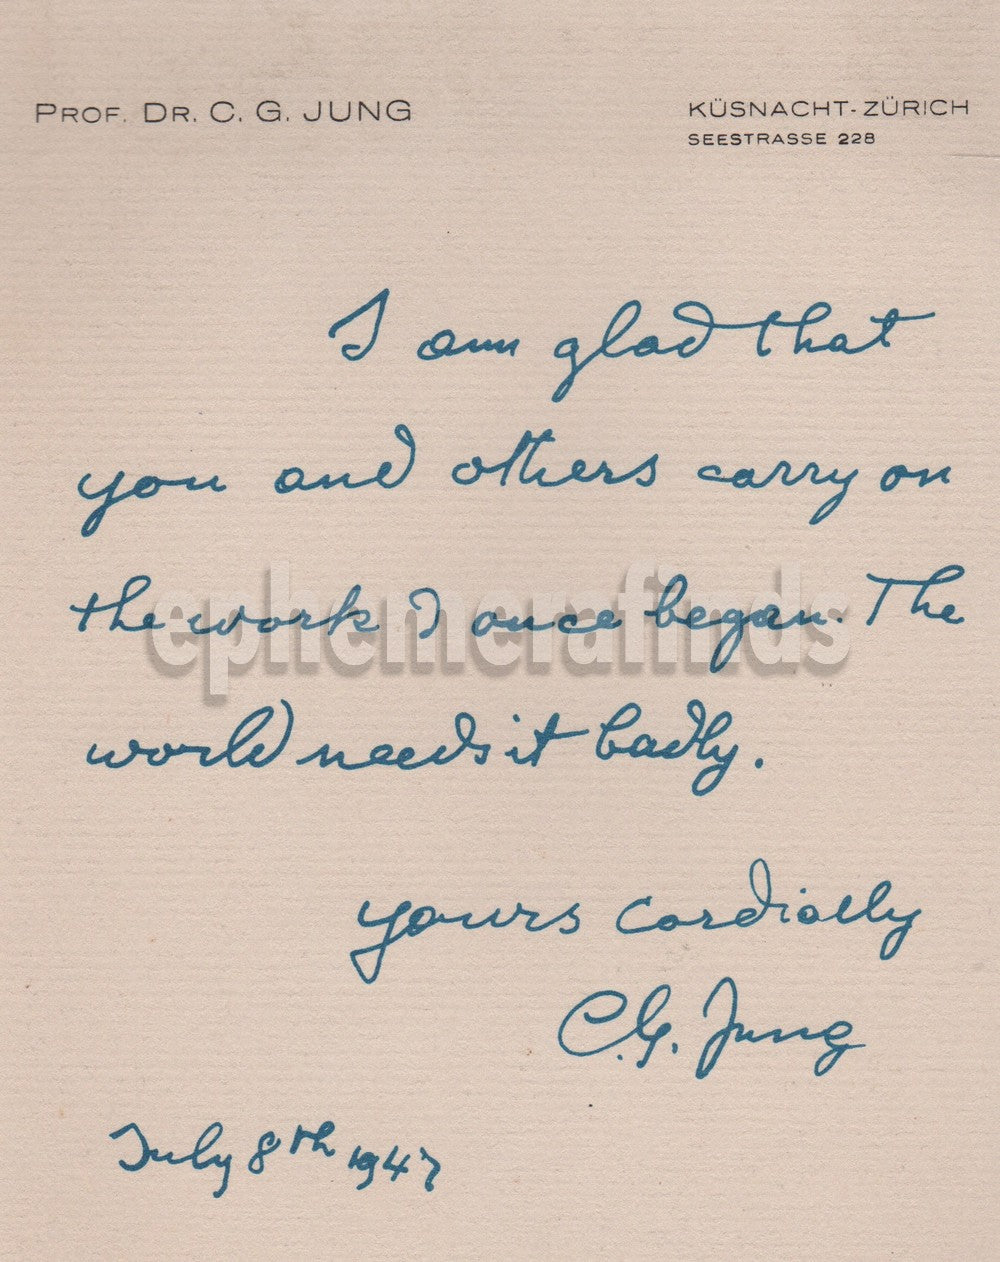 PROF. DR. C. G. JUNG
KÜSNACHT-ZÜRICH
SEESTRASSE 228
I am glad that
you and others carry on
the work I once began. The
world needs it badly.
yours cordially
C. G. Jung
July 8th 1947
ephemerafinds